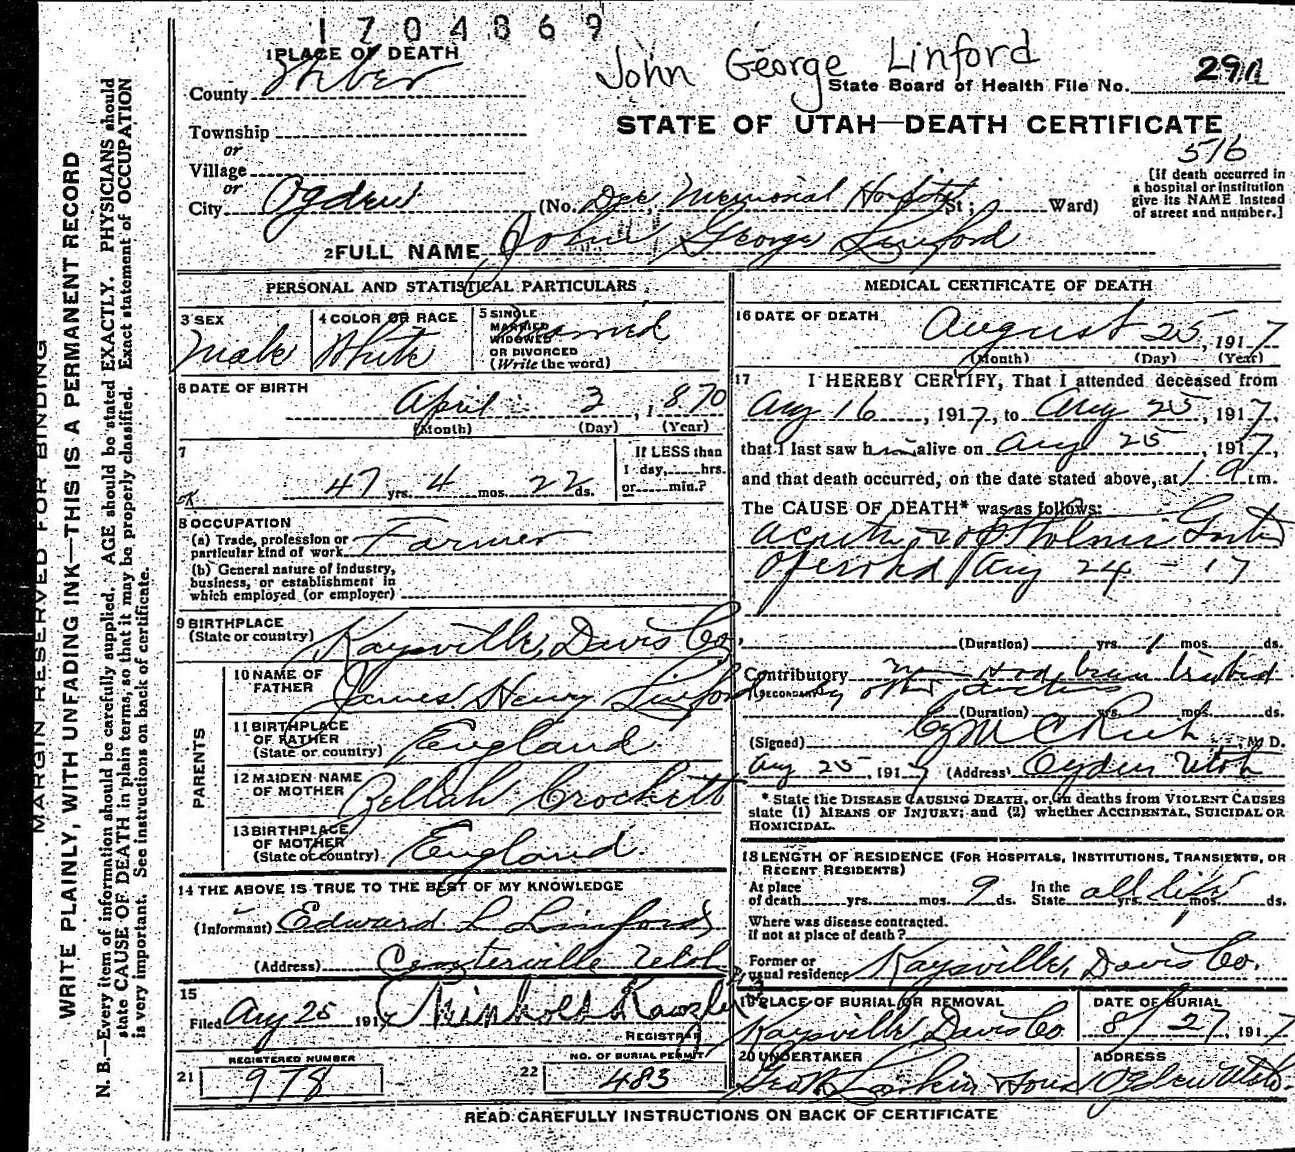 1704869
John George Linford
1 PLACE OF DEATH
County Weber
State Board of Health File No. 291
STATE OF UTAH—DEATH CERTIFICATE
Township
or
Village
or
City Ogden
516
(No. Dee Memorial Hospital St; Ward)
[If death occurred in
a hospital or institution
give its NAME instead
of street and number.]
2 FULL NAME John George Linford
PERSONAL AND STATISTICAL PARTICULARS
3 SEX
Male
4 COLOR OR RACE
White
5 SINGLE
MARRIED
WIDOWED
OR DIVORCED
(Write the word)
Married
6 DATE OF BIRTH
April 3, 1870
(Month) (Day) (Year)
7
47 yrs. 4 mos. 22 ds.
If LESS than
1 day, hrs.
or min.?
OK
8 OCCUPATION
(a) Trade, profession or
particular kind of work Farmer
(b) General nature of industry,
business, or establishment in
which employed (or employer)
9 BIRTHPLACE
(State or country) Kaysville, Davis Co.
PARENTS
10 NAME OF
FATHER James Henry Linford
11 BIRTHPLACE
OF FATHER
(State or country) England
12 MAIDEN NAME
OF MOTHER Zellah Crockett
13 BIRTHPLACE
OF MOTHER
(State or country) England
14 THE ABOVE IS TRUE TO THE BEST OF MY KNOWLEDGE
(Informant) Edward L Linford
(Address) Centerville Utah
15
Filed Aug 25 191
REGISTRAR
REGISTERED NUMBER
21 978
NO. OF BURIAL PERMIT
22 483
MEDICAL CERTIFICATE OF DEATH
16 DATE OF DEATH
August 25, 1917
(Month) (Day) (Year)
17 I HEREBY CERTIFY, That I attended deceased from
Aug 16, 1917, to Aug 25, 1917,
that I last saw him alive on Aug 25, 1917,
and that death occurred, on the date stated above, at m.
The CAUSE OF DEATH* was as follows:
Acute
Aug 24 - 17
(Duration) yrs. 1 mos. ds.
Contributory
(SECONDARY) other doctors
(Duration) yrs. mos. ds.
(Signed) M. D.
Aug 25, 1917 (Address) Ogden Utah
* State the DISEASE CAUSING DEATH, or, in deaths from VIOLENT CAUSES
state (1) MEANS OF INJURY; and (2) whether ACCIDENTAL, SUICIDAL OR
HOMICIDAL.
18 LENGTH OF RESIDENCE (FOR HOSPITALS, INSTITUTIONS, TRANSIENTS, OR
RECENT RESIDENTS)
At place
of death yrs. mos. 9 ds. In the
State all life yrs. mos. ds.
Where was disease contracted.
if not at place of death?
Former or
usual residence Kaysville, Davis Co.
19 PLACE OF BURIAL OR REMOVAL
Kaysville Davis Co
DATE OF BURIAL
8/27 1917
20 UNDERTAKER
Larkin & Sons
ADDRESS
Ogden Utah.
READ CAREFULLY INSTRUCTIONS ON BACK OF CERTIFICATE
MARGIN RESERVED FOR BINDING
WRITE PLAINLY, WITH UNFADING INK—THIS IS A PERMANENT RECORD
N. B.—Every item of information should be carefully supplied. AGE should be stated EXACTLY. PHYSICIANS should
state CAUSE OF DEATH in plain terms, so that it may be properly classified. Exact statement of OCCUPATION
is very important. See instructions on back of certificate.